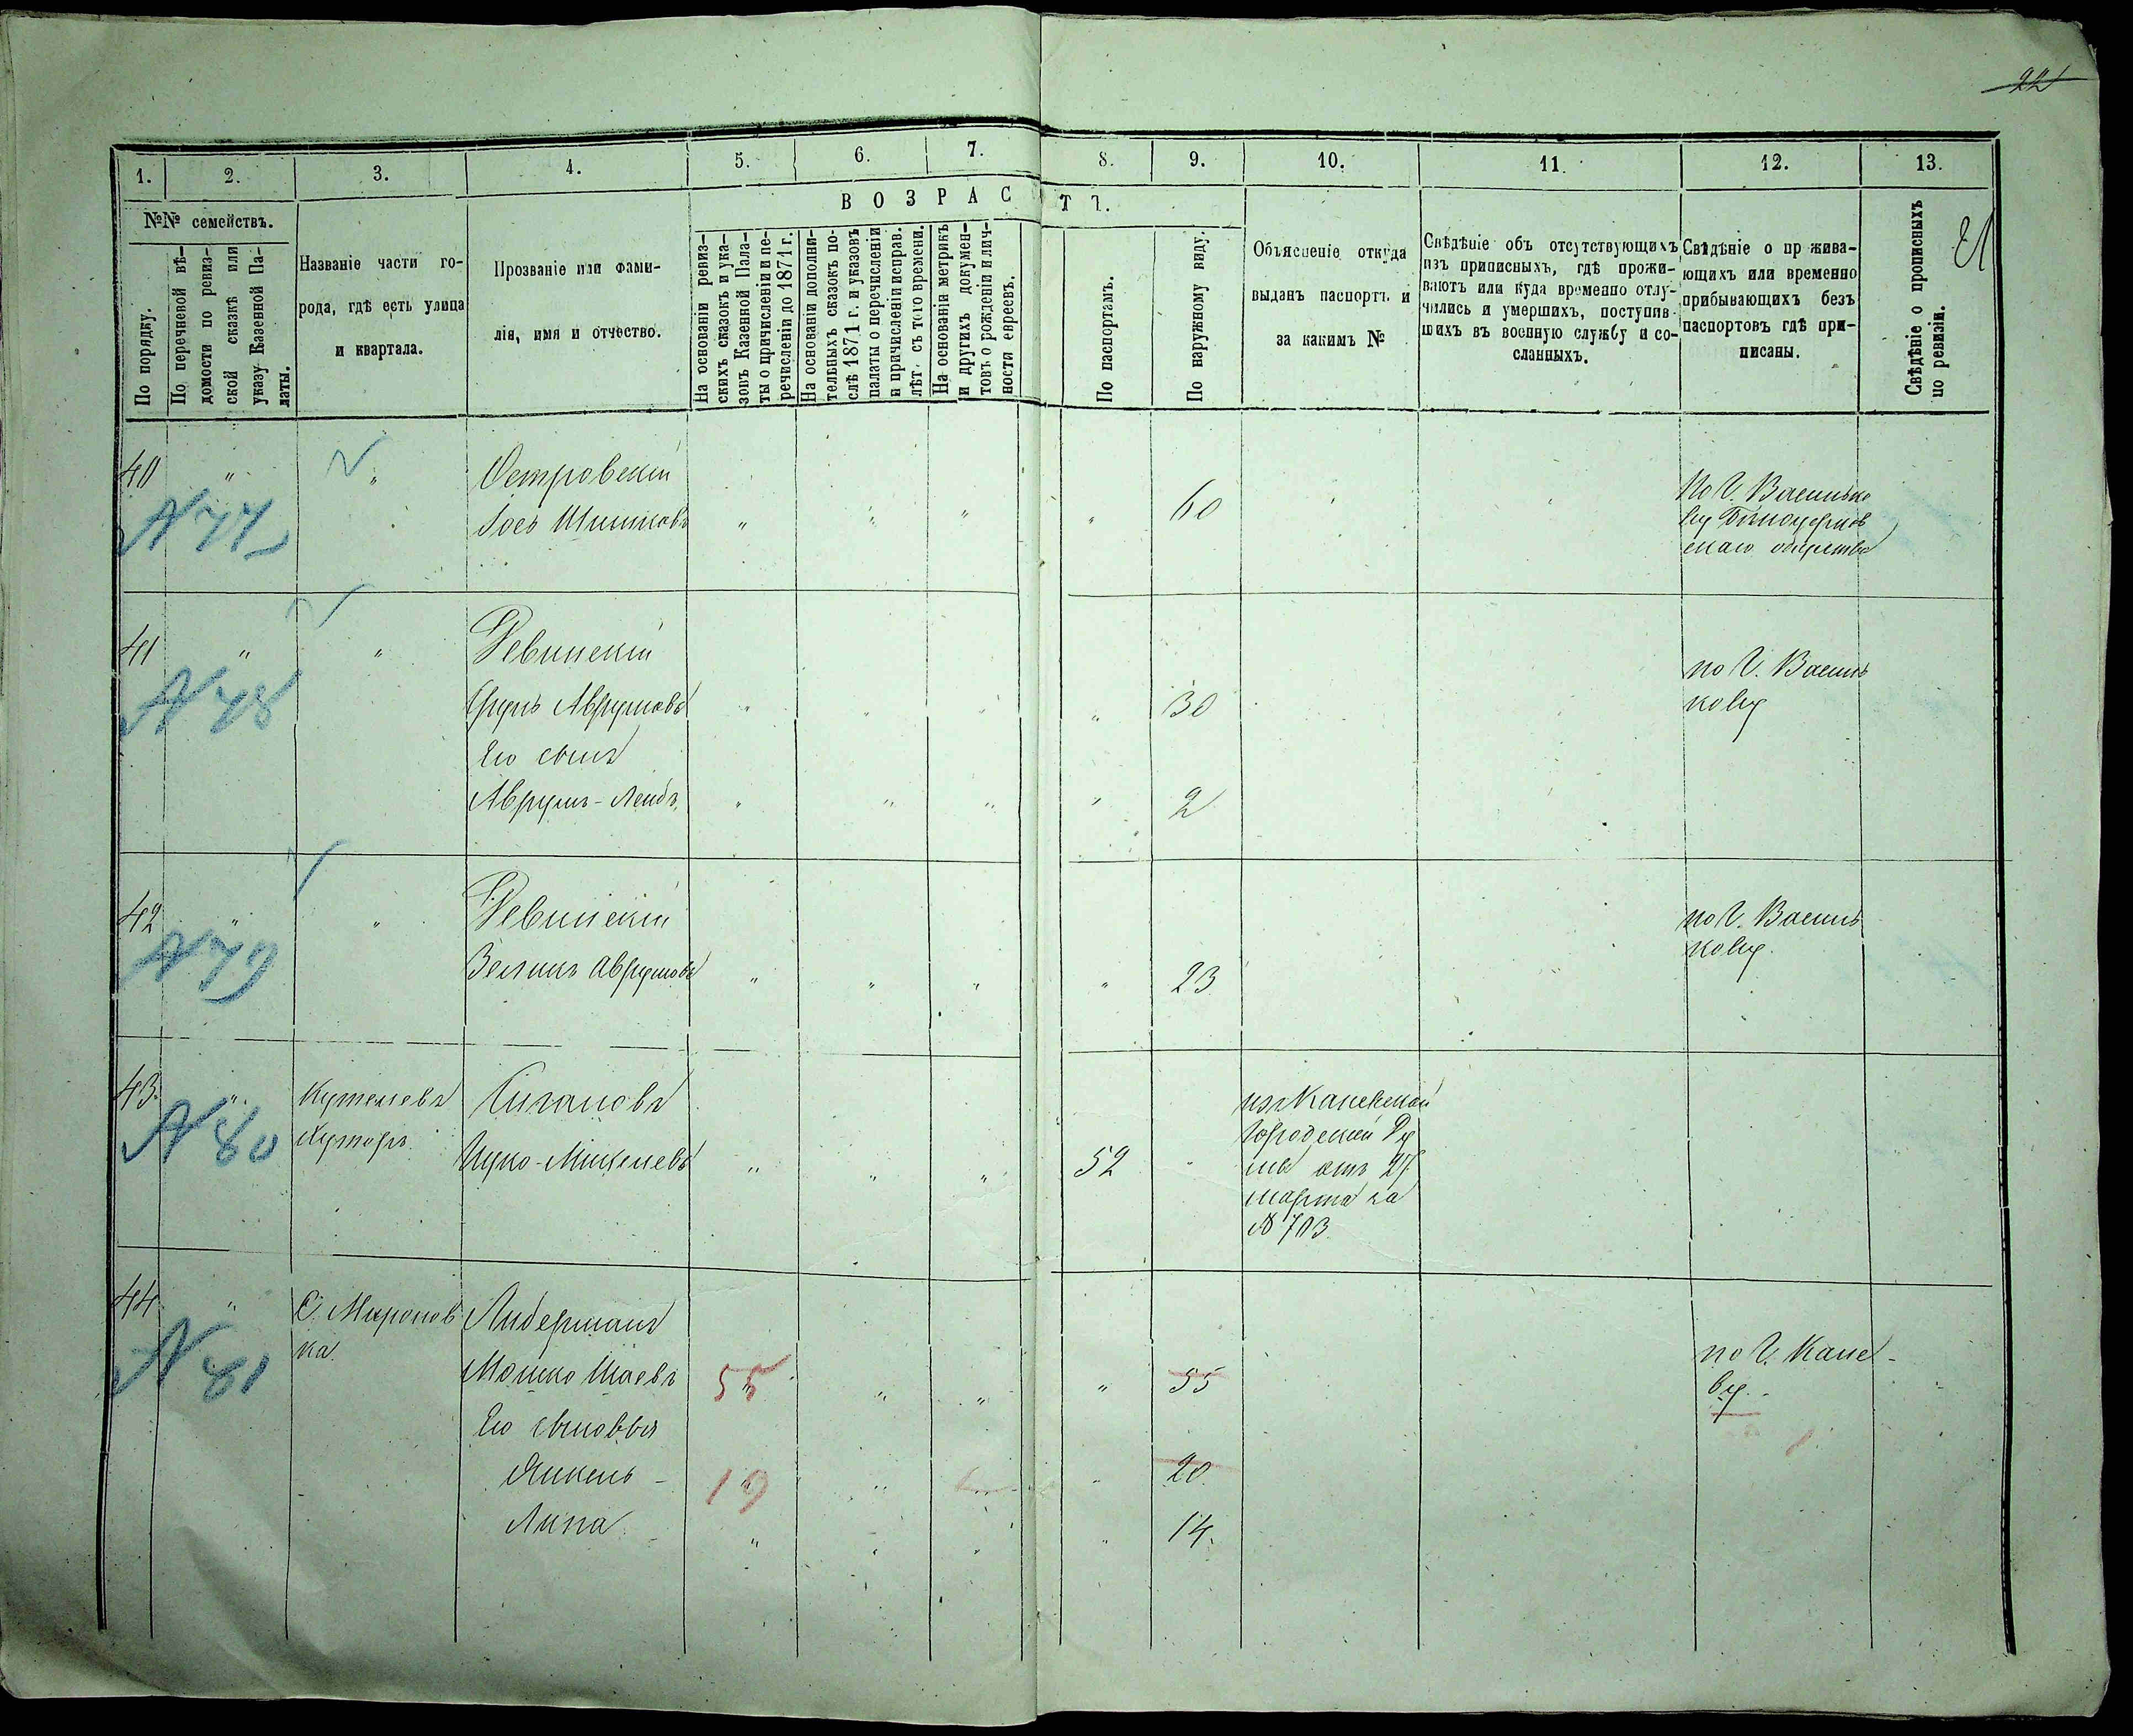 22
21
1. 2. 3. 4. 5. 6. 7. 8. 9. 10. 11. 12. 13.
ВОЗРАСТЪ.
№№ семействъ.
По порядку.
По перечневой вѣ-
домости по ревиз-
ской сказкѣ или
указу Казенной Па-
латы.
Названіе части го-
рода, гдѣ есть улица
и квартала.
Прозваніе или фами-
лія, имя и отчество.
На основаніи ревиз-
скихъ сказокъ и ука-
зовъ Казенной Пала-
ты о причисленіи и пе-
речисленіи до 1871 г.
На основаніи дополни-
тельныхъ сказокъ по-
слѣ 1871 г. и указовъ
палаты о перечисленіи
и причисленіи исправ.
лѣт. съ того времени.
На основаніи метрикъ
и другихъ докумен-
товъ о рожденіи и лич-
ности евреевъ.
По паспортамъ.
По наружному виду.
Объясненіе откуда
выданъ паспортъ и
за какимъ №
Свѣдѣніе объ отсутствующихъ
изъ приписныхъ, гдѣ прожи-
ваютъ или куда временно отлу-
чились и умершихъ, поступив-
шихъ въ военную службу и со-
сланныхъ.
Свѣдѣніе о прожива-
ющихъ или временно
прибывающихъ безъ
паспортовъ гдѣ при-
писаны.
Свѣдѣніе о прописныхъ
по ревизіи.
40 " " Островскій
№ 77
Іось " " " " 60
По г. Василько
ву Бѣлоцерков
скаго общества
41 " " Ревинскій
№ 78
Аврумовъ " " " " 30
по г. Василь
кову
Его сынъ
Аврумъ-Лейбъ " " " " 2
42 " " Ревинскій
№ 79
Зеликъ Аврумовъ " " " " 23
по г. Василь
кову.
43. " Кутелевъ
Хуторъ.
№ 80
Цигановъ
Ицко- " " " 52 "
изъ Каневской
Городской Ду
мы отъ 27
марта за
№ 703
44. " С. Миронов
ка.
№ 81
Лидерманъ
Мошко Шаевъ 55 " " " 55
по г. Кане-
ву.
Его сыновья
Янкель - 19 " " 20
Липа " " " " 14.